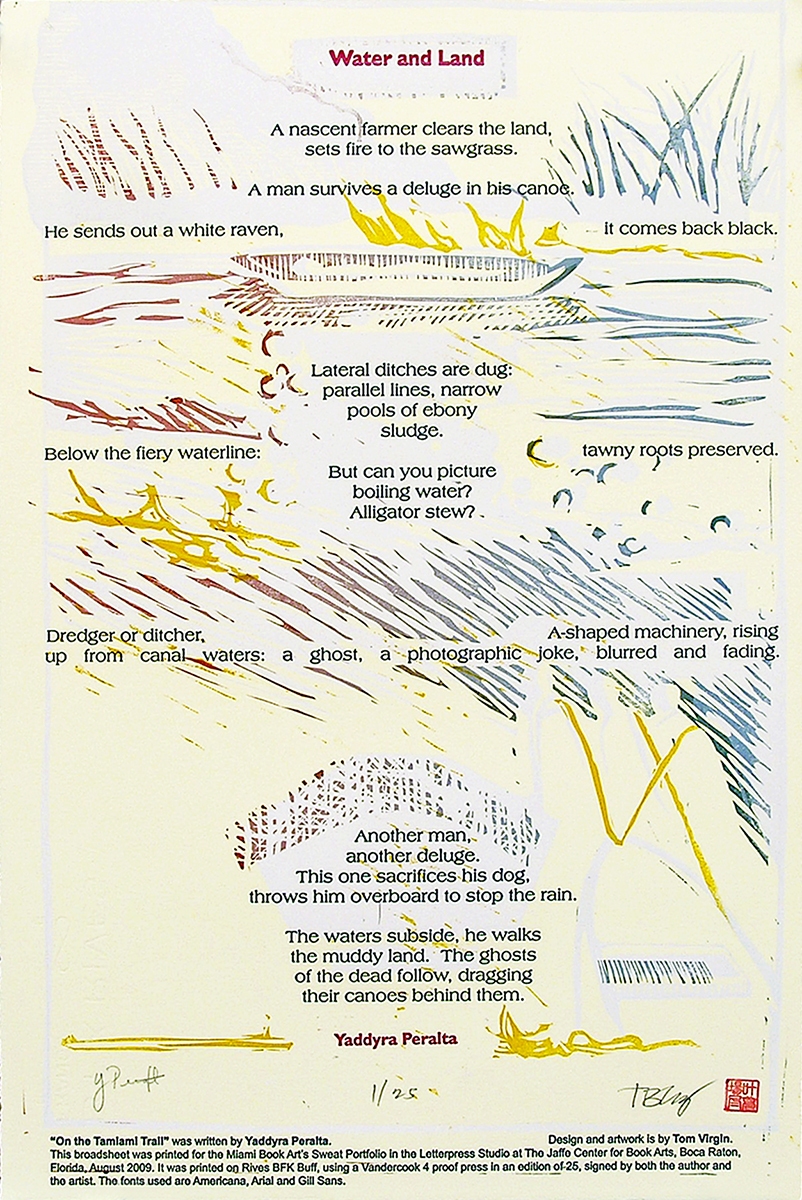 Water and Land
A nascent farmer clears the land,
sets fire to the sawgrass.
A man survives a deluge in his canoe.
He sends out a white raven, it comes back black.
Lateral ditches are dug:
parallel lines, narrow
pools of ebony
sludge.
Below the fiery waterline: tawny roots preserved.
But can you picture
boiling water?
Alligator stew?
Dredger or ditcher, A-shaped machinery, rising
up from canal waters: a ghost, a photographic joke, blurred and fading.
Another man,
another deluge.
This one sacrifices his dog,
throws him overboard to stop the rain.
The waters subside, he walks
the muddy land. The ghosts
of the dead follow, dragging
their canoes behind them.
Yaddyra Peralta
1/25
"On the Tamiami Trail" was written by Yaddyra Peralta. Design and artwork is by Tom Virgin.
This broadsheet was printed for the Miami Book Art's Sweat Portfolio in the Letterpress Studio at The Jaffe Center for Book Arts, Boca Raton,
Florida, August 2009. It was printed on Rives BFK Buff, using a Vandercook 4 proof press in an edition of 25, signed by both the author and
the artist. The fonts used are Americana, Arial and Gill Sans.